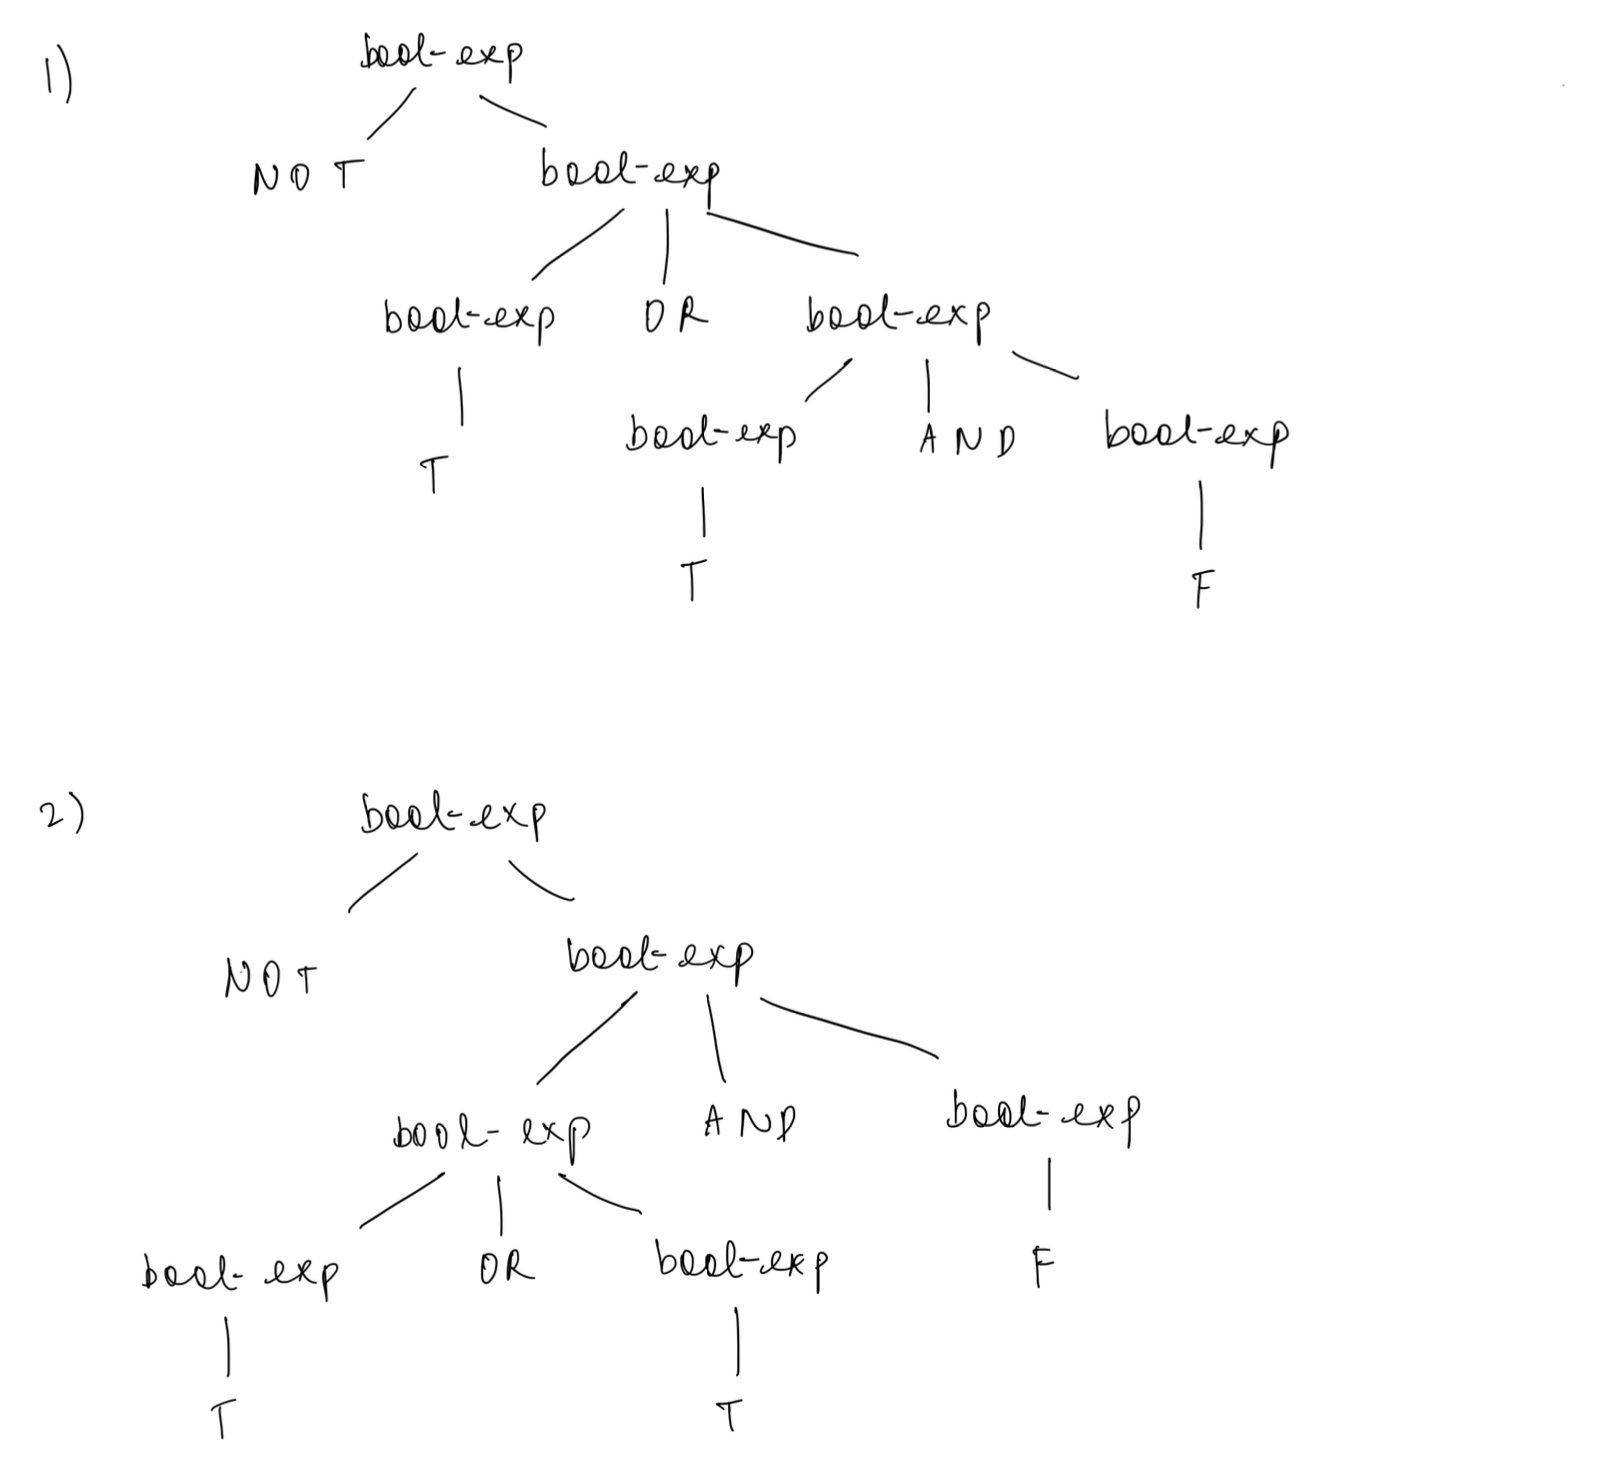 1) bool-exp
NOT bool-exp
bool-exp OR bool-exp
bool-exp AND bool-exp
T
T F
2) bool-exp
NOT bool-exp
bool-exp AND bool-exp
bool-exp OR bool-exp F
T T